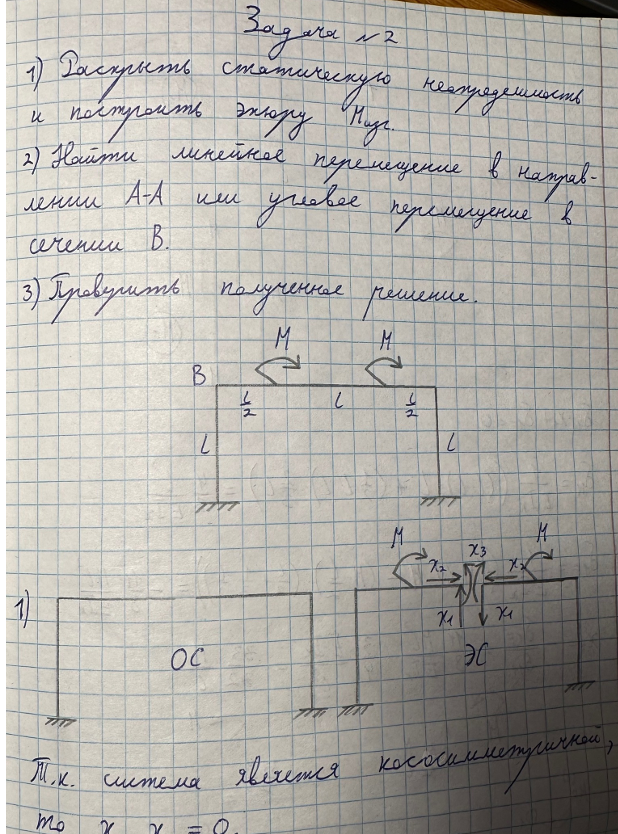 Задача №2
1) Раскрыть статическую неопределимость
и построить эпюру Mизг.
2) Найти линейное перемещение в направ-
лении А-А или угловое перемещение в
сечении В.
3) Проверить полученное решение.
M M
B
l/2 l l/2
l l
M M
x₂ x₃ x₂
x₁ x₁
1)
ОС ЭС
Т.к. система является кососимметричной,
то x x = 0.